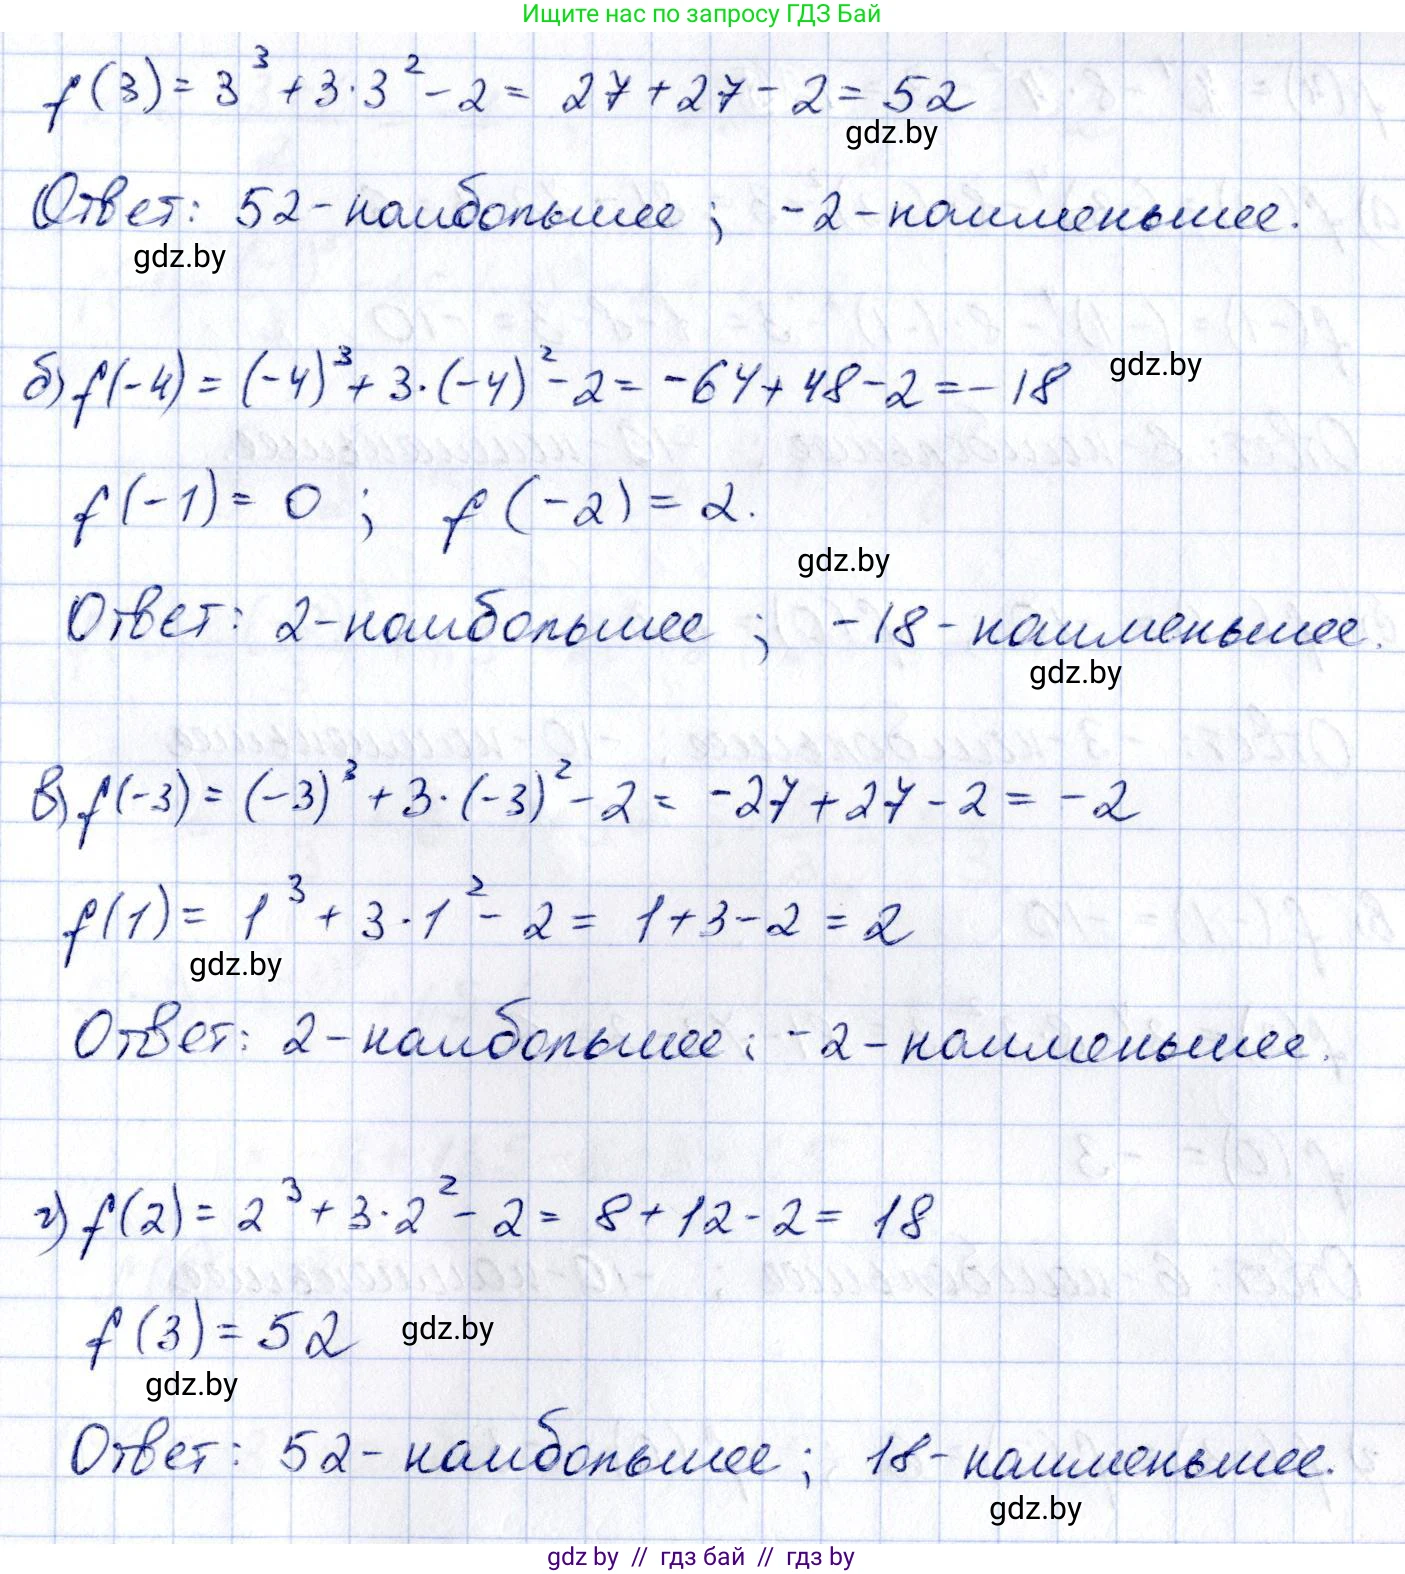 Ищите нас по запросу ГДЗ Бай
f(3) = 3³ + 3·3² - 2 = 27 + 27 - 2 = 52
gdz.by
Ответ: 52 - наибольшее ; -2 - наименьшее.
gdz.by
б) f(-4) = (-4)³ + 3·(-4)² - 2 = -64 + 48 - 2 = -18
gdz.by
f(-1) = 0 ; f(-2) = 2.
gdz.by
Ответ: 2 - наибольшее ; -18 - наименьшее.
gdz.by
в) f(-3) = (-3)³ + 3·(-3)² - 2 = -27 + 27 - 2 = -2
f(1) = 1³ + 3·1² - 2 = 1 + 3 - 2 = 2
gdz.by
Ответ: 2 - наибольшее ; -2 - наименьшее.
г) f(2) = 2³ + 3·2² - 2 = 8 + 12 - 2 = 18
f(3) = 52
gdz.by
gdz.by
Ответ: 52 - наибольшее ; 18 - наименьшее.
gdz.by
gdz by // гдз бай // гдз by